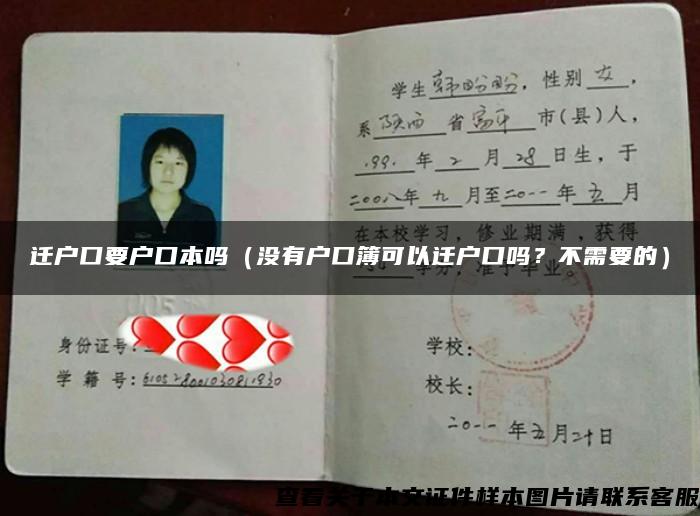 学生韩盼盼，性别女，
系陕西省富平市(县)人，
1991年2月28日生，于
二00八年九月至二0一一年五月
在本校学习，修业期满，获得
学分，准予毕业。
迁户口要户口本吗（没有户口簿可以迁户口吗？不需要的）
身份证号：
学籍号：
学校：
校长：
二0一一年五月二十日
查看关于本文证件样本图片请联系客服